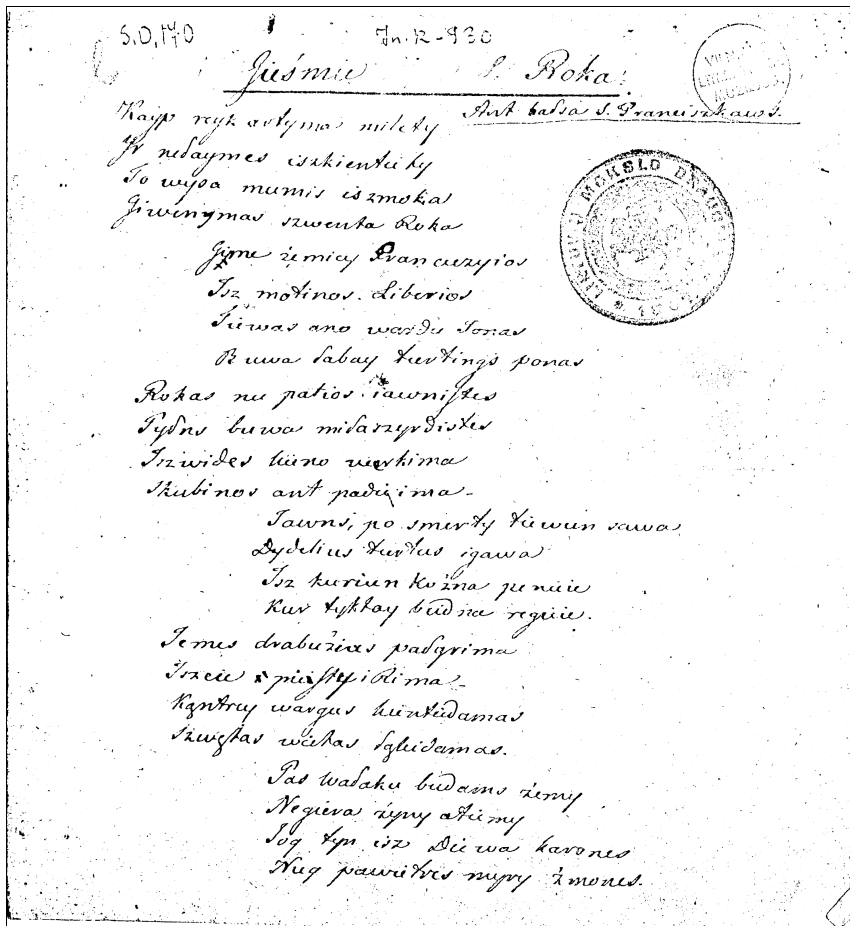 S.D,140
In. R-930
Giesmie S. Roka.
Ant balsa S. Pranciszkaws.
LIETUVIŲ MOKSLO DRAUGIJA
Kayp reyk artyma milety
Jr nedaymes iszkientety
To wysa mumis iszmoka
Giwenymas szwenta Roka
Gime żemiey Prancuzyios
Isz motinos Liberios
Tiewas ano wardu Jonas
Buwa łabay turtings ponas
Rokas nu patios iawnistes
Pyłns buwa miłaszyrdistes
Iszwides kieno werkima
Skubinos ant padieima
Jawns, po smerty tiewun sawa
Dydelius turtus igawa
Isz kuriun kożna peneie
Kur tyktay budna regieie.
Jemes drabużius pałgrima
Iszeie piesty i Rima
Kąntrey wargus kientedamas
Szwętas wietas łąkidamas.
Pas wałaku budams żemy
Negiera żyny atiemy
Jog tyn isz Diewa karones
Nug pawietres myry żmones.